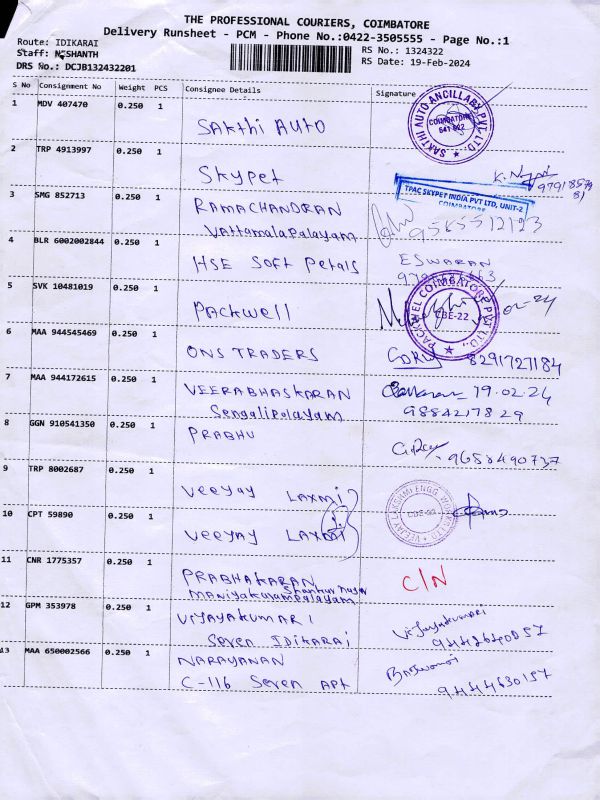 THE PROFESSIONAL COURIERS, COIMBATORE
Delivery Runsheet - PCM - Phone No.:0422-3505555 - Page No.:1
Route: IDIKARAI
Staff: NISHANTH
DRS No.: DCJB132432201
RS No.: 1324322
RS Date: 19-Feb-2024
S No Consignment No Weight PCS Consignee Details Signature
1 MDV 407470 0.250 1
SAKthi AUTO
SAKTHI AUTO ANCILLARY PVT LTD
COIMBATORE
641 022
2 TRP 4913997 0.250 1
Skypet
TPAC SKYPET INDIA PVT LTD, UNIT-2
COIMBATORE
3 SMG 852713 0.250 1
RAMACHANDRAN
Vattamalaipalayam
9565512123
4 BLR 6002002844 0.250 1
HSE Soft Petals
ESWARAN
5 SVK 10481019 0.250 1
PACKwell
COIMBATORE PVT LTD.,
CBE-22
02-24
6 MAA 944545469 0.250 1
ONS TRADERS
8291727184
7 MAA 944172615 0.250 1
VEERABHASKARAN
Sengalipalayam
19.02.24
9884217829
8 GGN 910541350 0.250 1
PRABHU
9658490737
9 TRP 8002687 0.250 1
Veeyay LAXMI
10 CPT 59890 0.250 1
Veeyay LAXMI
11 CNR 1775357 0.250 1
PRABHAKARAN
C/N
12 GPM 353978 0.250 1
VIJAYAKUMARI
Seven IDikarai
Vijayakumari
13 MAA 650002566 0.250 1
NARAYANAN
C-116 Seven Apt
9444630157